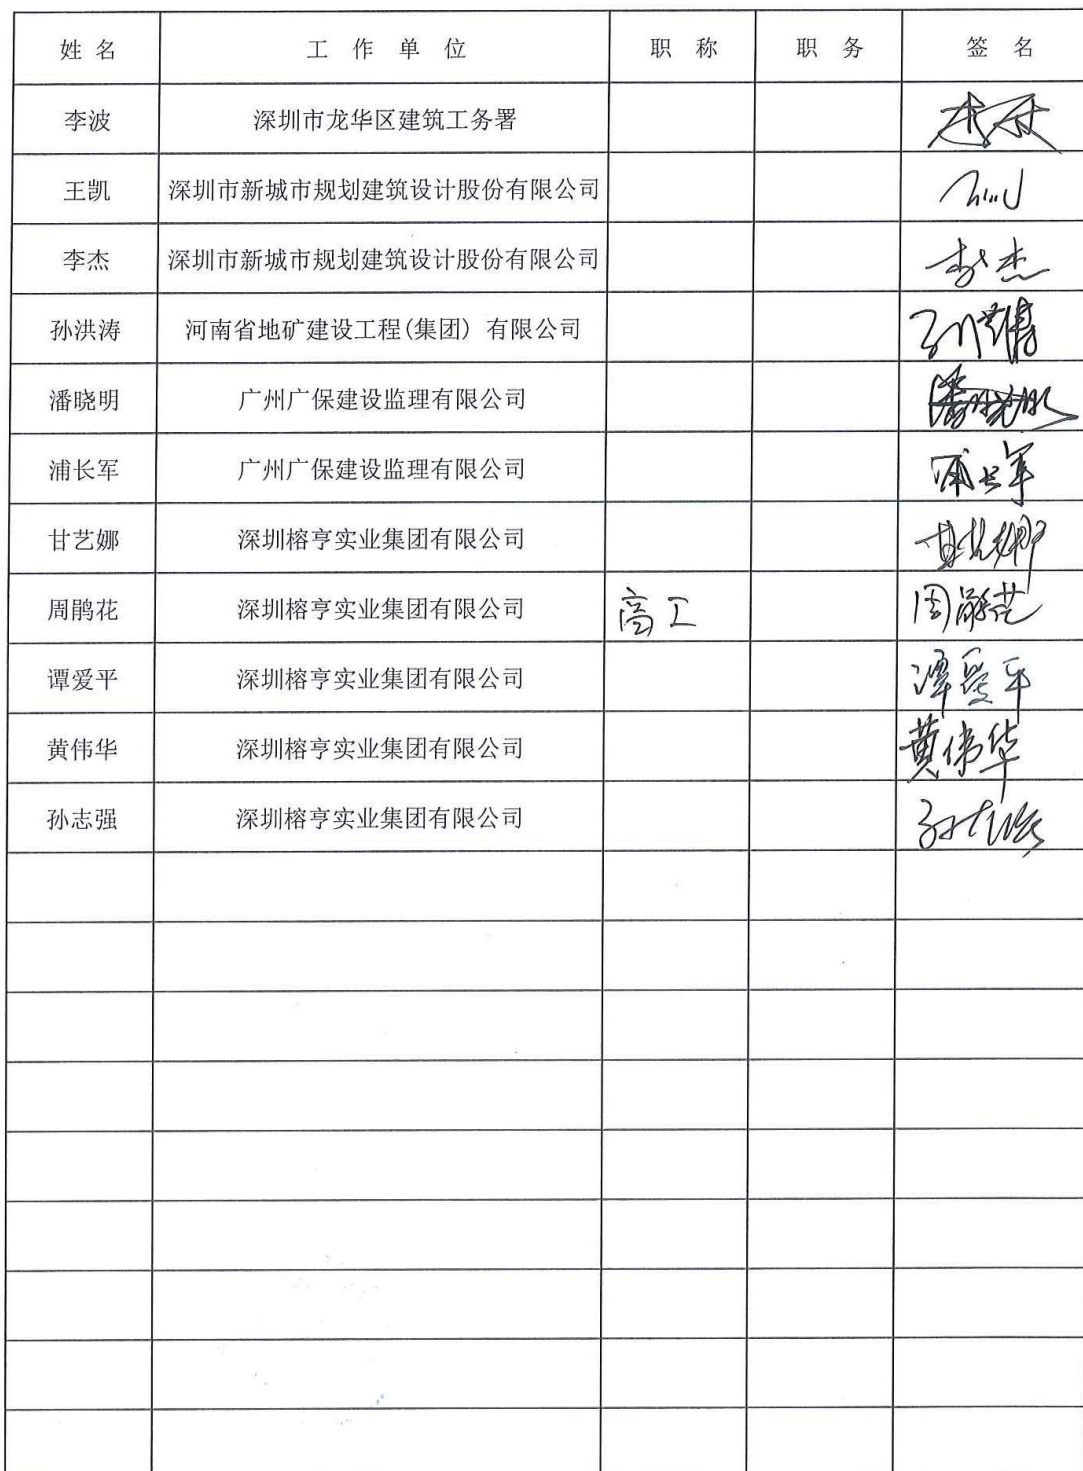 姓 名 工 作 单 位 职 称 职 务 签 名
李波 深圳市龙华区建筑工务署
王凯 深圳市新城市规划建筑设计股份有限公司
李杰 深圳市新城市规划建筑设计股份有限公司 李杰
孙洪涛 河南省地矿建设工程(集团) 有限公司
潘晓明 广州广保建设监理有限公司 潘晓明
浦长军 广州广保建设监理有限公司 浦长军
甘艺娜 深圳榕亨实业集团有限公司 甘艺娜
周鹃花 深圳榕亨实业集团有限公司 高工 周鹃花
谭爱平 深圳榕亨实业集团有限公司 谭爱平
黄伟华 深圳榕亨实业集团有限公司 黄伟华
孙志强 深圳榕亨实业集团有限公司